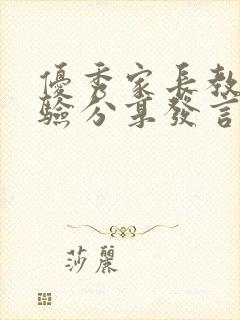 優秀家長教
驗分享發言
莎麗